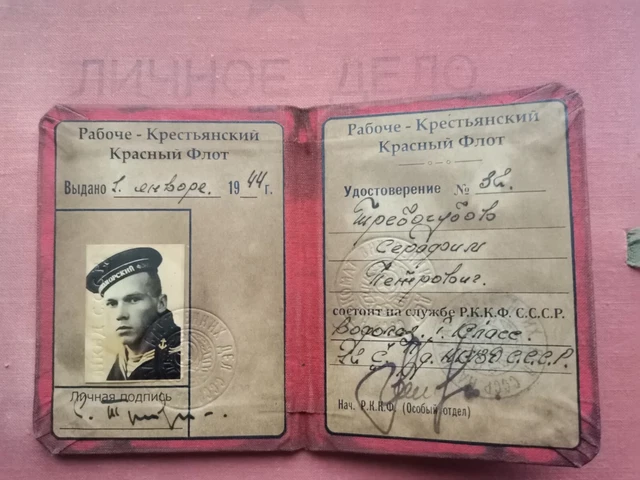 ЛИЧНОЕ ДЕЛО
Рабоче - Крестьянский
Красный Флот
Выдано 1. январе. 1944 г.
Личная подпись
Рабоче - Крестьянский
Красный Флот
Удостоверение № 32.
Серафим
Петрович.
состоят на службе Р.К.К.Ф. С.С.С.Р.
Водолаз. 1. Класс.
С.С.С.Р.
Нач. Р.К.К.Ф. (Особый отдел)